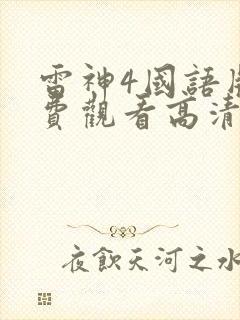 雷神4國語
費觀看高清
夜飲天河之水